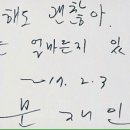 해도 괜찮아.
얼마든지 있
~17. 2. 3
문 재 인